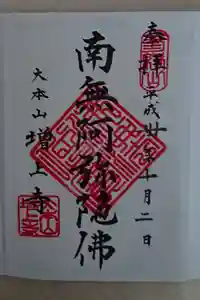 奉拝 平成廿年十月二日
南無阿弥陀佛
大本山 増上寺